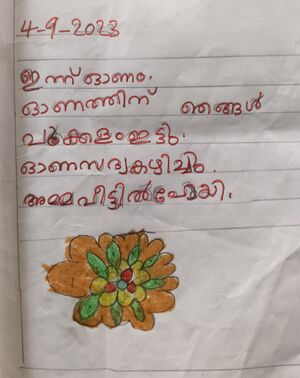 4-9-2023
ഇന്ന് ഓണം.
ഓണത്തിന് ഞങ്ങൾ
പൂക്കളം ഇട്ടു.
ഓണസദ്യകഴിച്ചു.
അമ്മ വീട്ടിൽപോയി.